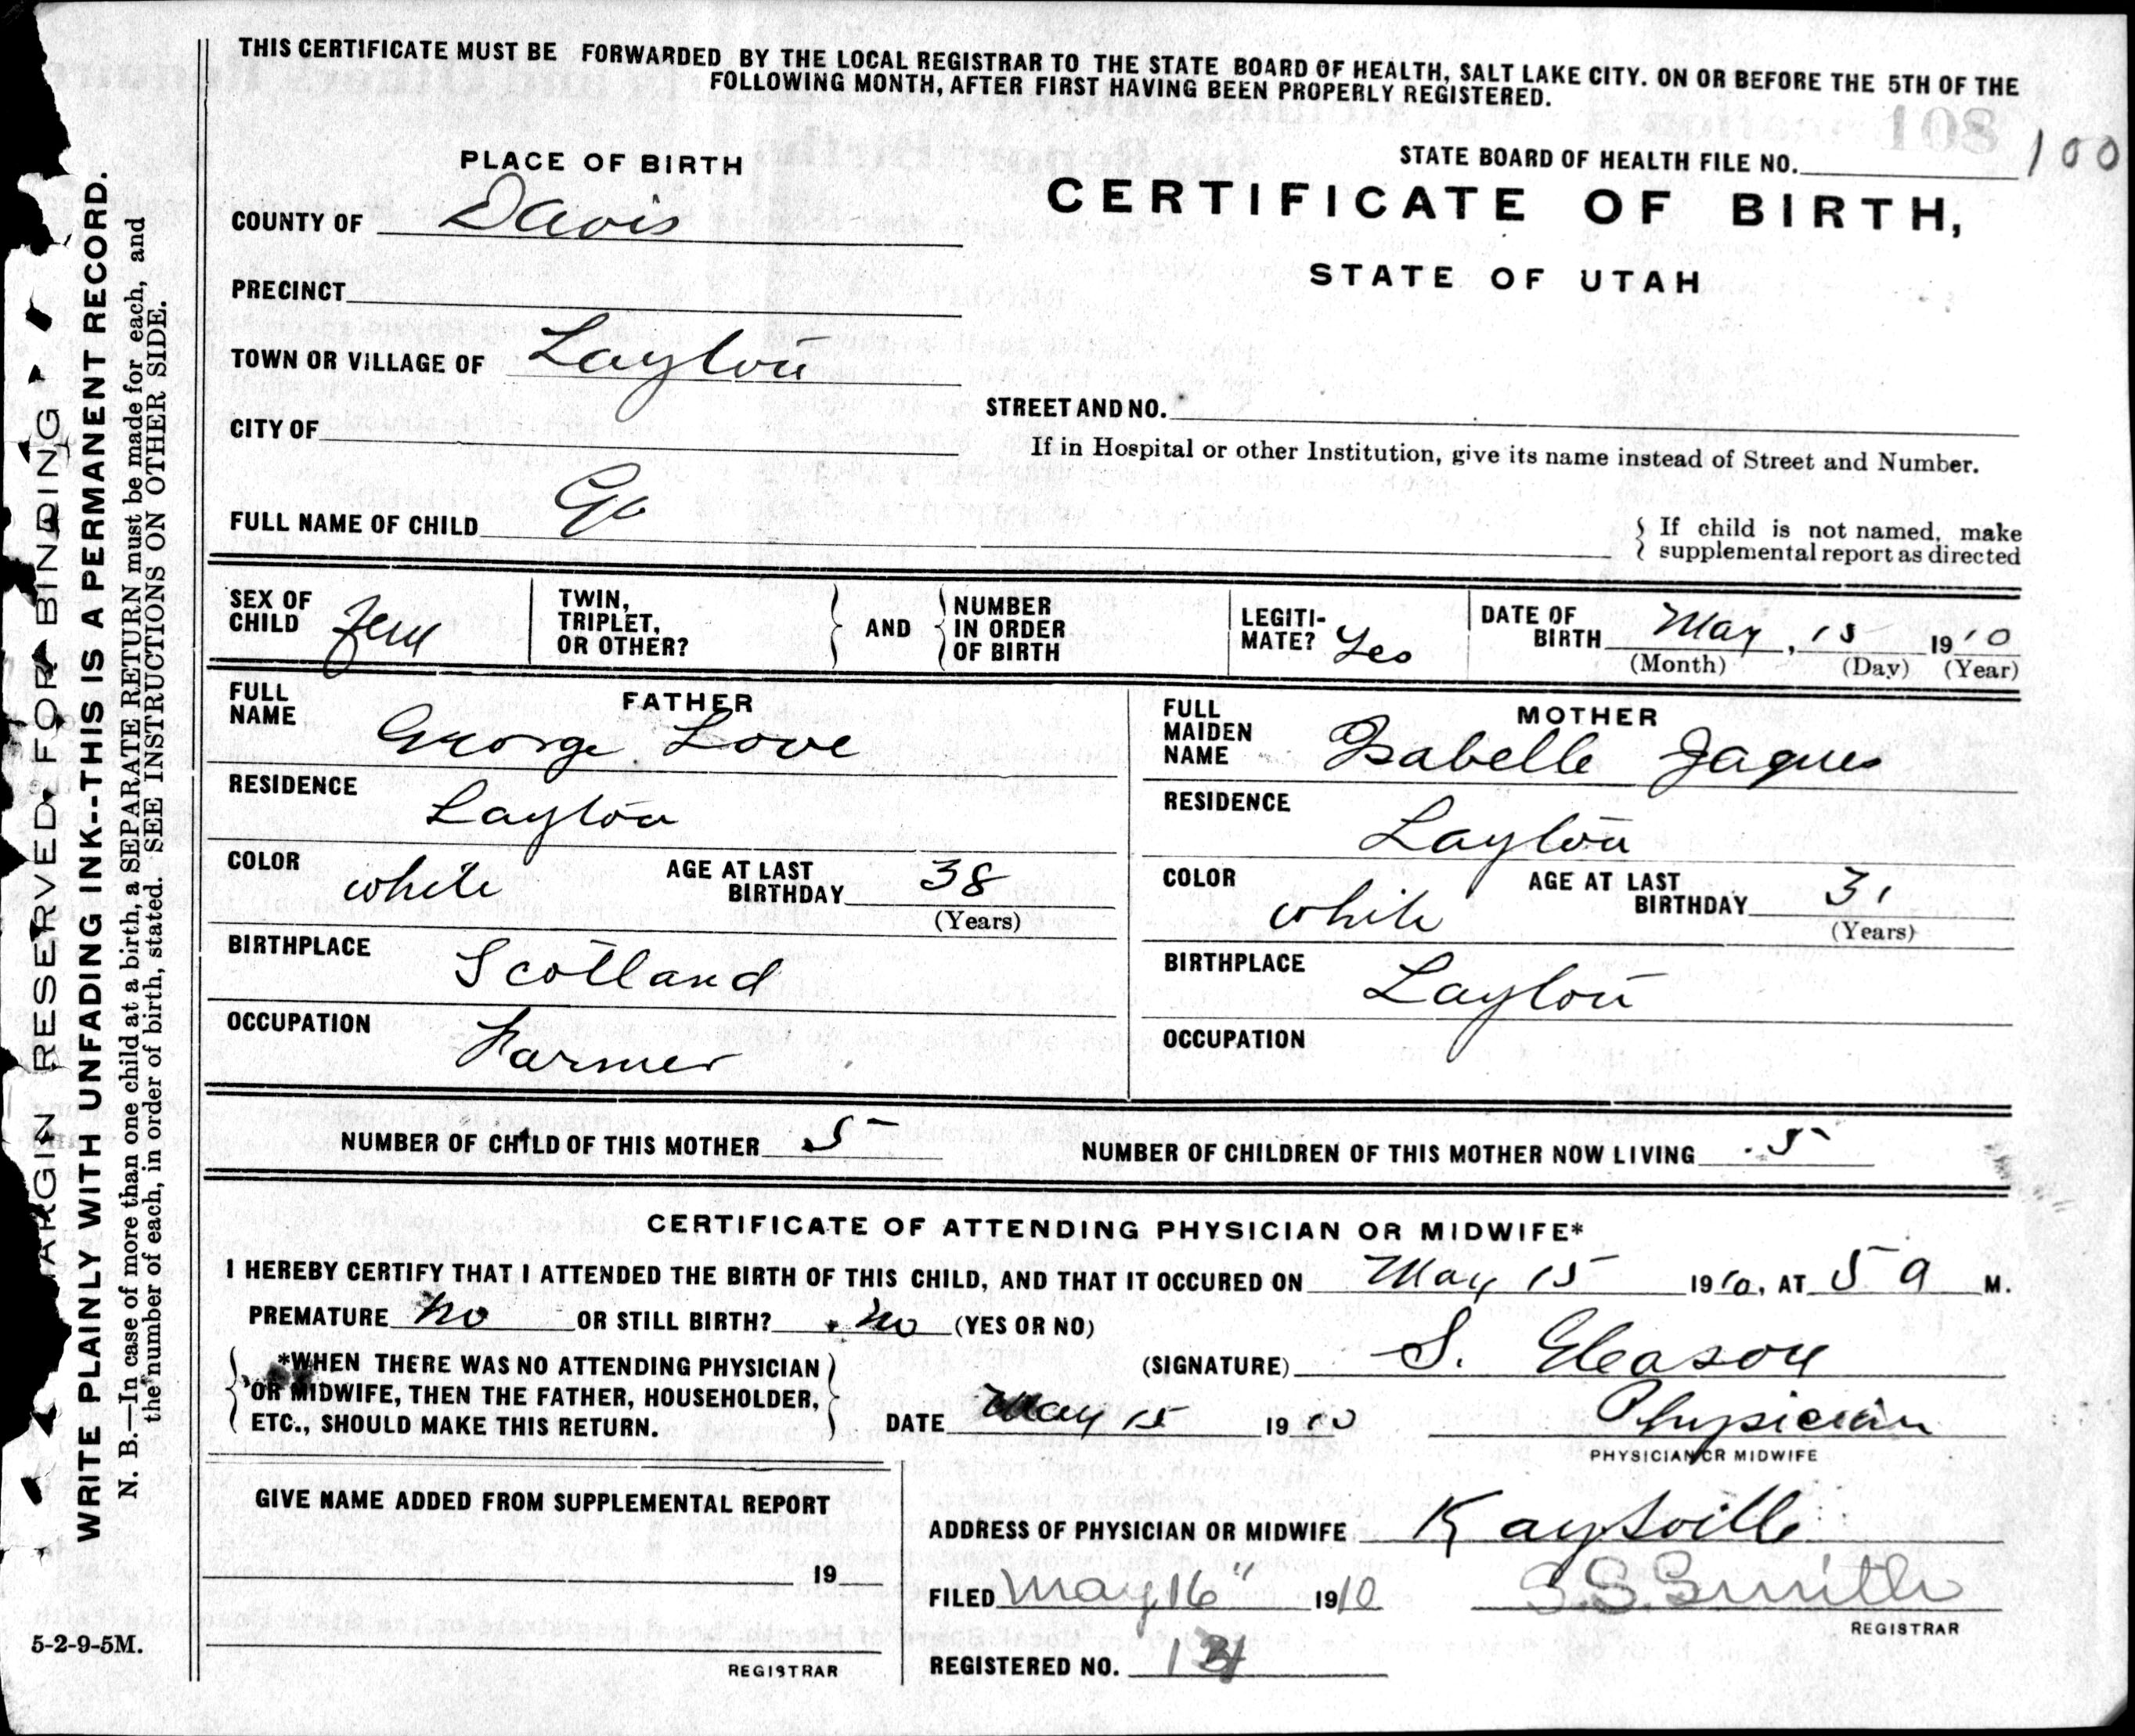 THIS CERTIFICATE MUST BE FORWARDED BY THE LOCAL REGISTRAR TO THE STATE BOARD OF HEALTH, SALT LAKE CITY. ON OR BEFORE THE 5TH OF THE
FOLLOWING MONTH, AFTER FIRST HAVING BEEN PROPERLY REGISTERED.
108
STATE BOARD OF HEALTH FILE NO. 100
CERTIFICATE OF BIRTH,
STATE OF UTAH
PLACE OF BIRTH
COUNTY OF Davis
PRECINCT
TOWN OR VILLAGE OF Layton
CITY OF
STREET AND NO.
If in Hospital or other Institution, give its name instead of Street and Number.
FULL NAME OF CHILD
If child is not named, make
supplemental report as directed
SEX OF CHILD Fem
TWIN, TRIPLET, OR OTHER?
AND
NUMBER IN ORDER OF BIRTH
LEGITI-MATE? Yes
DATE OF BIRTH May, 15 1910
(Month) (Day) (Year)
FATHER
FULL NAME George Love
RESIDENCE Layton
COLOR white AGE AT LAST BIRTHDAY 38
(Years)
BIRTHPLACE Scotland
OCCUPATION Farmer
MOTHER
FULL MAIDEN NAME Isabelle Jaques
RESIDENCE Layton
COLOR white AGE AT LAST BIRTHDAY 31
(Years)
BIRTHPLACE Layton
OCCUPATION
NUMBER OF CHILD OF THIS MOTHER 5 NUMBER OF CHILDREN OF THIS MOTHER NOW LIVING 5
CERTIFICATE OF ATTENDING PHYSICIAN OR MIDWIFE*
I HEREBY CERTIFY THAT I ATTENDED THE BIRTH OF THIS CHILD, AND THAT IT OCCURED ON May 15 1910, AT 5 a M.
PREMATURE no OR STILL BIRTH? no (YES OR NO)
*WHEN THERE WAS NO ATTENDING PHYSICIAN
OR MIDWIFE, THEN THE FATHER, HOUSEHOLDER,
ETC., SHOULD MAKE THIS RETURN.
(SIGNATURE) S. Gleason
DATE May 15 1910 Physician
PHYSICIAN OR MIDWIFE
GIVE NAME ADDED FROM SUPPLEMENTAL REPORT
19
REGISTRAR
ADDRESS OF PHYSICIAN OR MIDWIFE Kaysville
FILED May 16" 1910 Smith
REGISTRAR
REGISTERED NO.
5-2-9-5M.
MARGIN RESERVED FOR BINDING
WRITE PLAINLY WITH UNFADING INK--THIS IS A PERMANENT RECORD.
N. B.—In case of more than one child at a birth, a SEPARATE RETURN must be made for each, and
the number of each, in order of birth, stated. SEE INSTRUCTIONS ON OTHER SIDE.